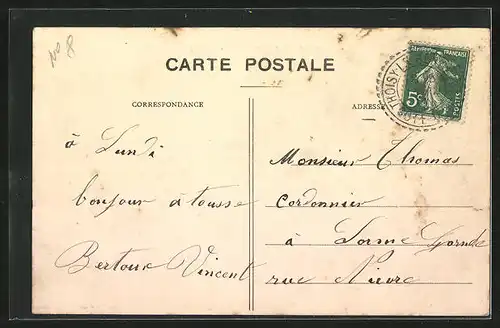 No 8
CARTE POSTALE
CORRESPONDANCE
ADRESSE
REPUBLIQUE FRANÇAISE
5c
POSTES
THOISY-L
à Lundi
bonjour à tousse
Bertoux Vincent
Monsieur Thomas
cordonnier
à
rue Nievre